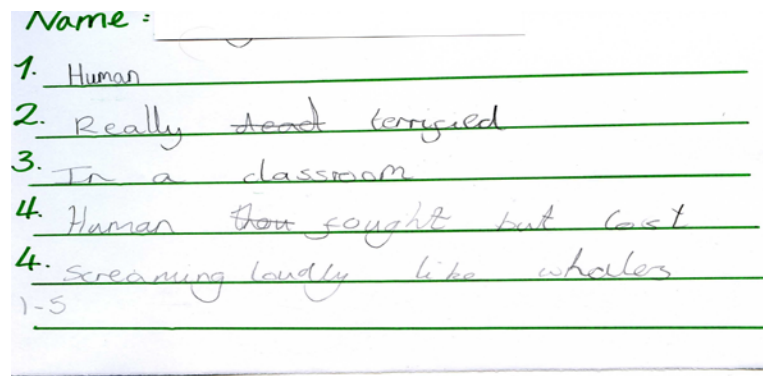 Name :
1. Human
2. Really dead terrified
3. In a classroom
4. Human thou fought but lost
4. Screaming loudly like whales
1-5